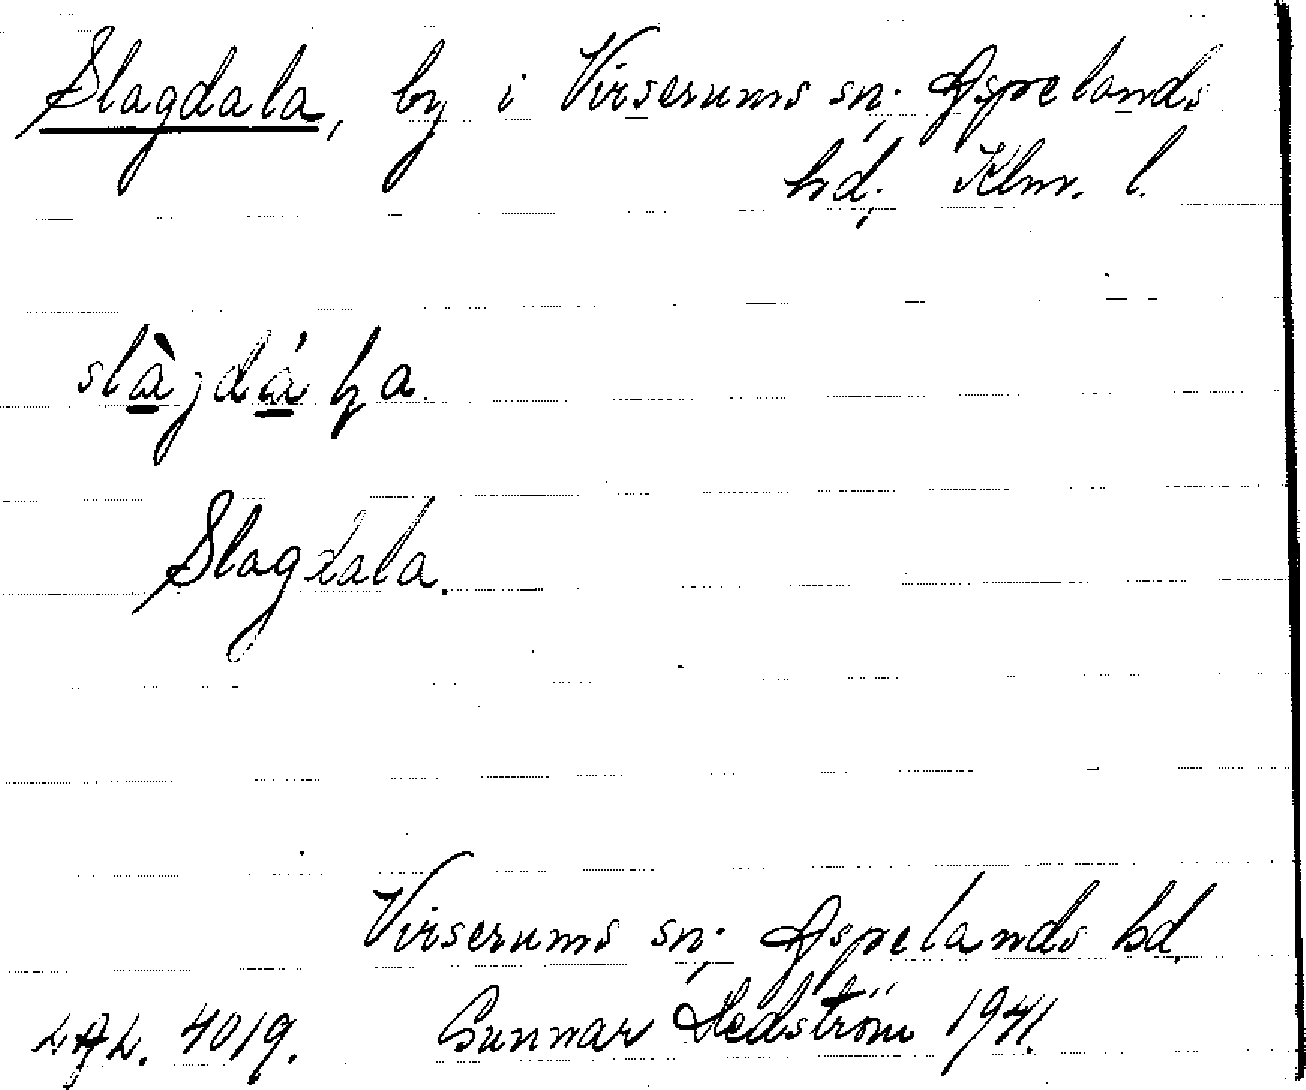 Slagdala, by i Virserums sn; Aspelands
hd; Klm. l.
slàgdáɫa.
Slagdala.
Virserums sn; Aspelands hd.
LAL. 4019. Gunnar Hedström 1941.